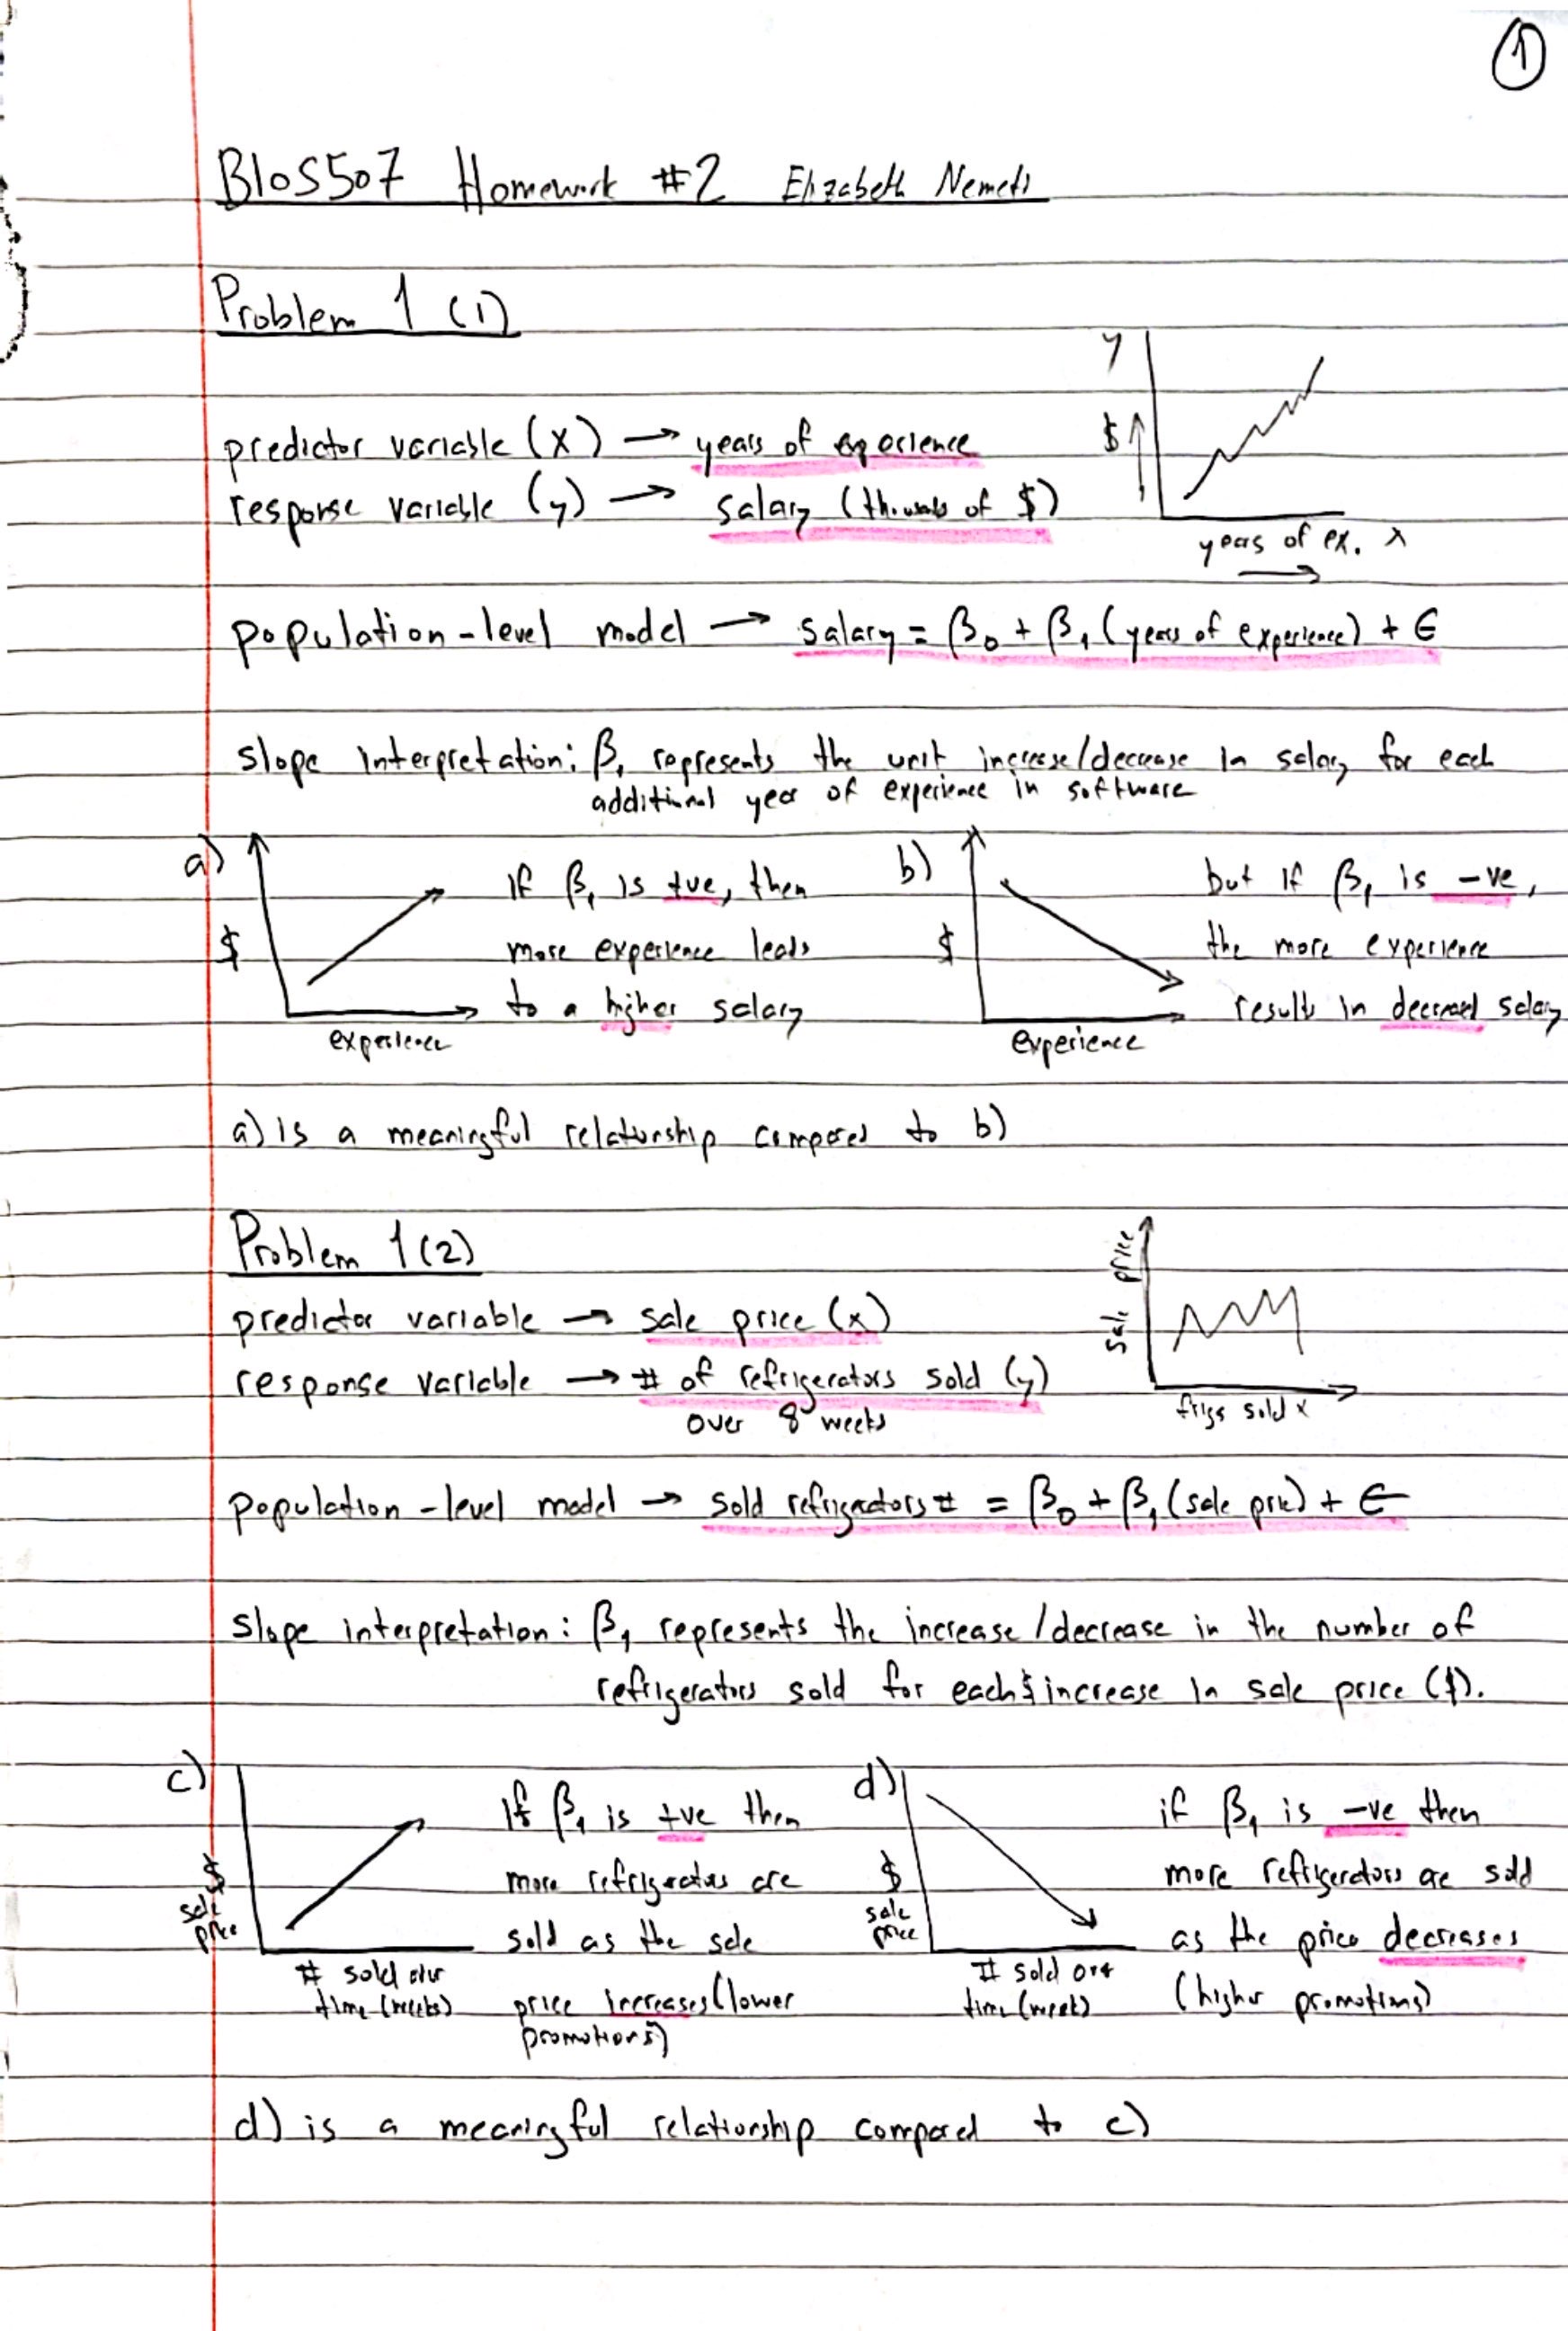 1
BIOS507 Homework #2 Elizabeth Nemeti
Problem 1 (1)
predictor variable (x) → years of experience
response variable (y) → salary (thousands of $)
y
$
years of ex. x
population-level model → salary = β₀ + β₁ (years of experience) + ε
slope interpretation: β₁ represents the unit increase/decrease in salary for each
additional year of experience in software
a)
$
experience
if β₁ is +ve, then
more experience leads
to a higher salary
b)
$
experience
but if β₁ is -ve,
the more experience
results in decreased salary
a) is a meaningful relationship compared to b)
Problem 1 (2)
predictor variable → sale price (x)
response variable → # of refrigerators sold (y)
over 8 weeks
sale price
frigs sold x
population-level model → sold refrigerators # = β₀ + β₁ (sale price) + ε
slope interpretation: β₁ represents the increase/decrease in the number of
refrigerators sold for each $ increase in sale price ($).
c)
$
sale
price
# sold over
time (weeks)
If β₁ is +ve then
more refrigerators are
sold as the sale
price increases (lower
promotions)
d)
$
sale
price
# sold over
time (week)
if β₁ is -ve then
more refrigerators are sold
as the price decreases
(higher promotions)
d) is a meaningful relationship compared to c)